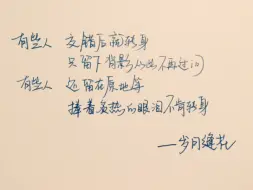 有些人 交错后离转身
只留下背影从此不再过问
有些人 还留在原地等
捧着炙热的眼泪不肯转身
—岁月缝花